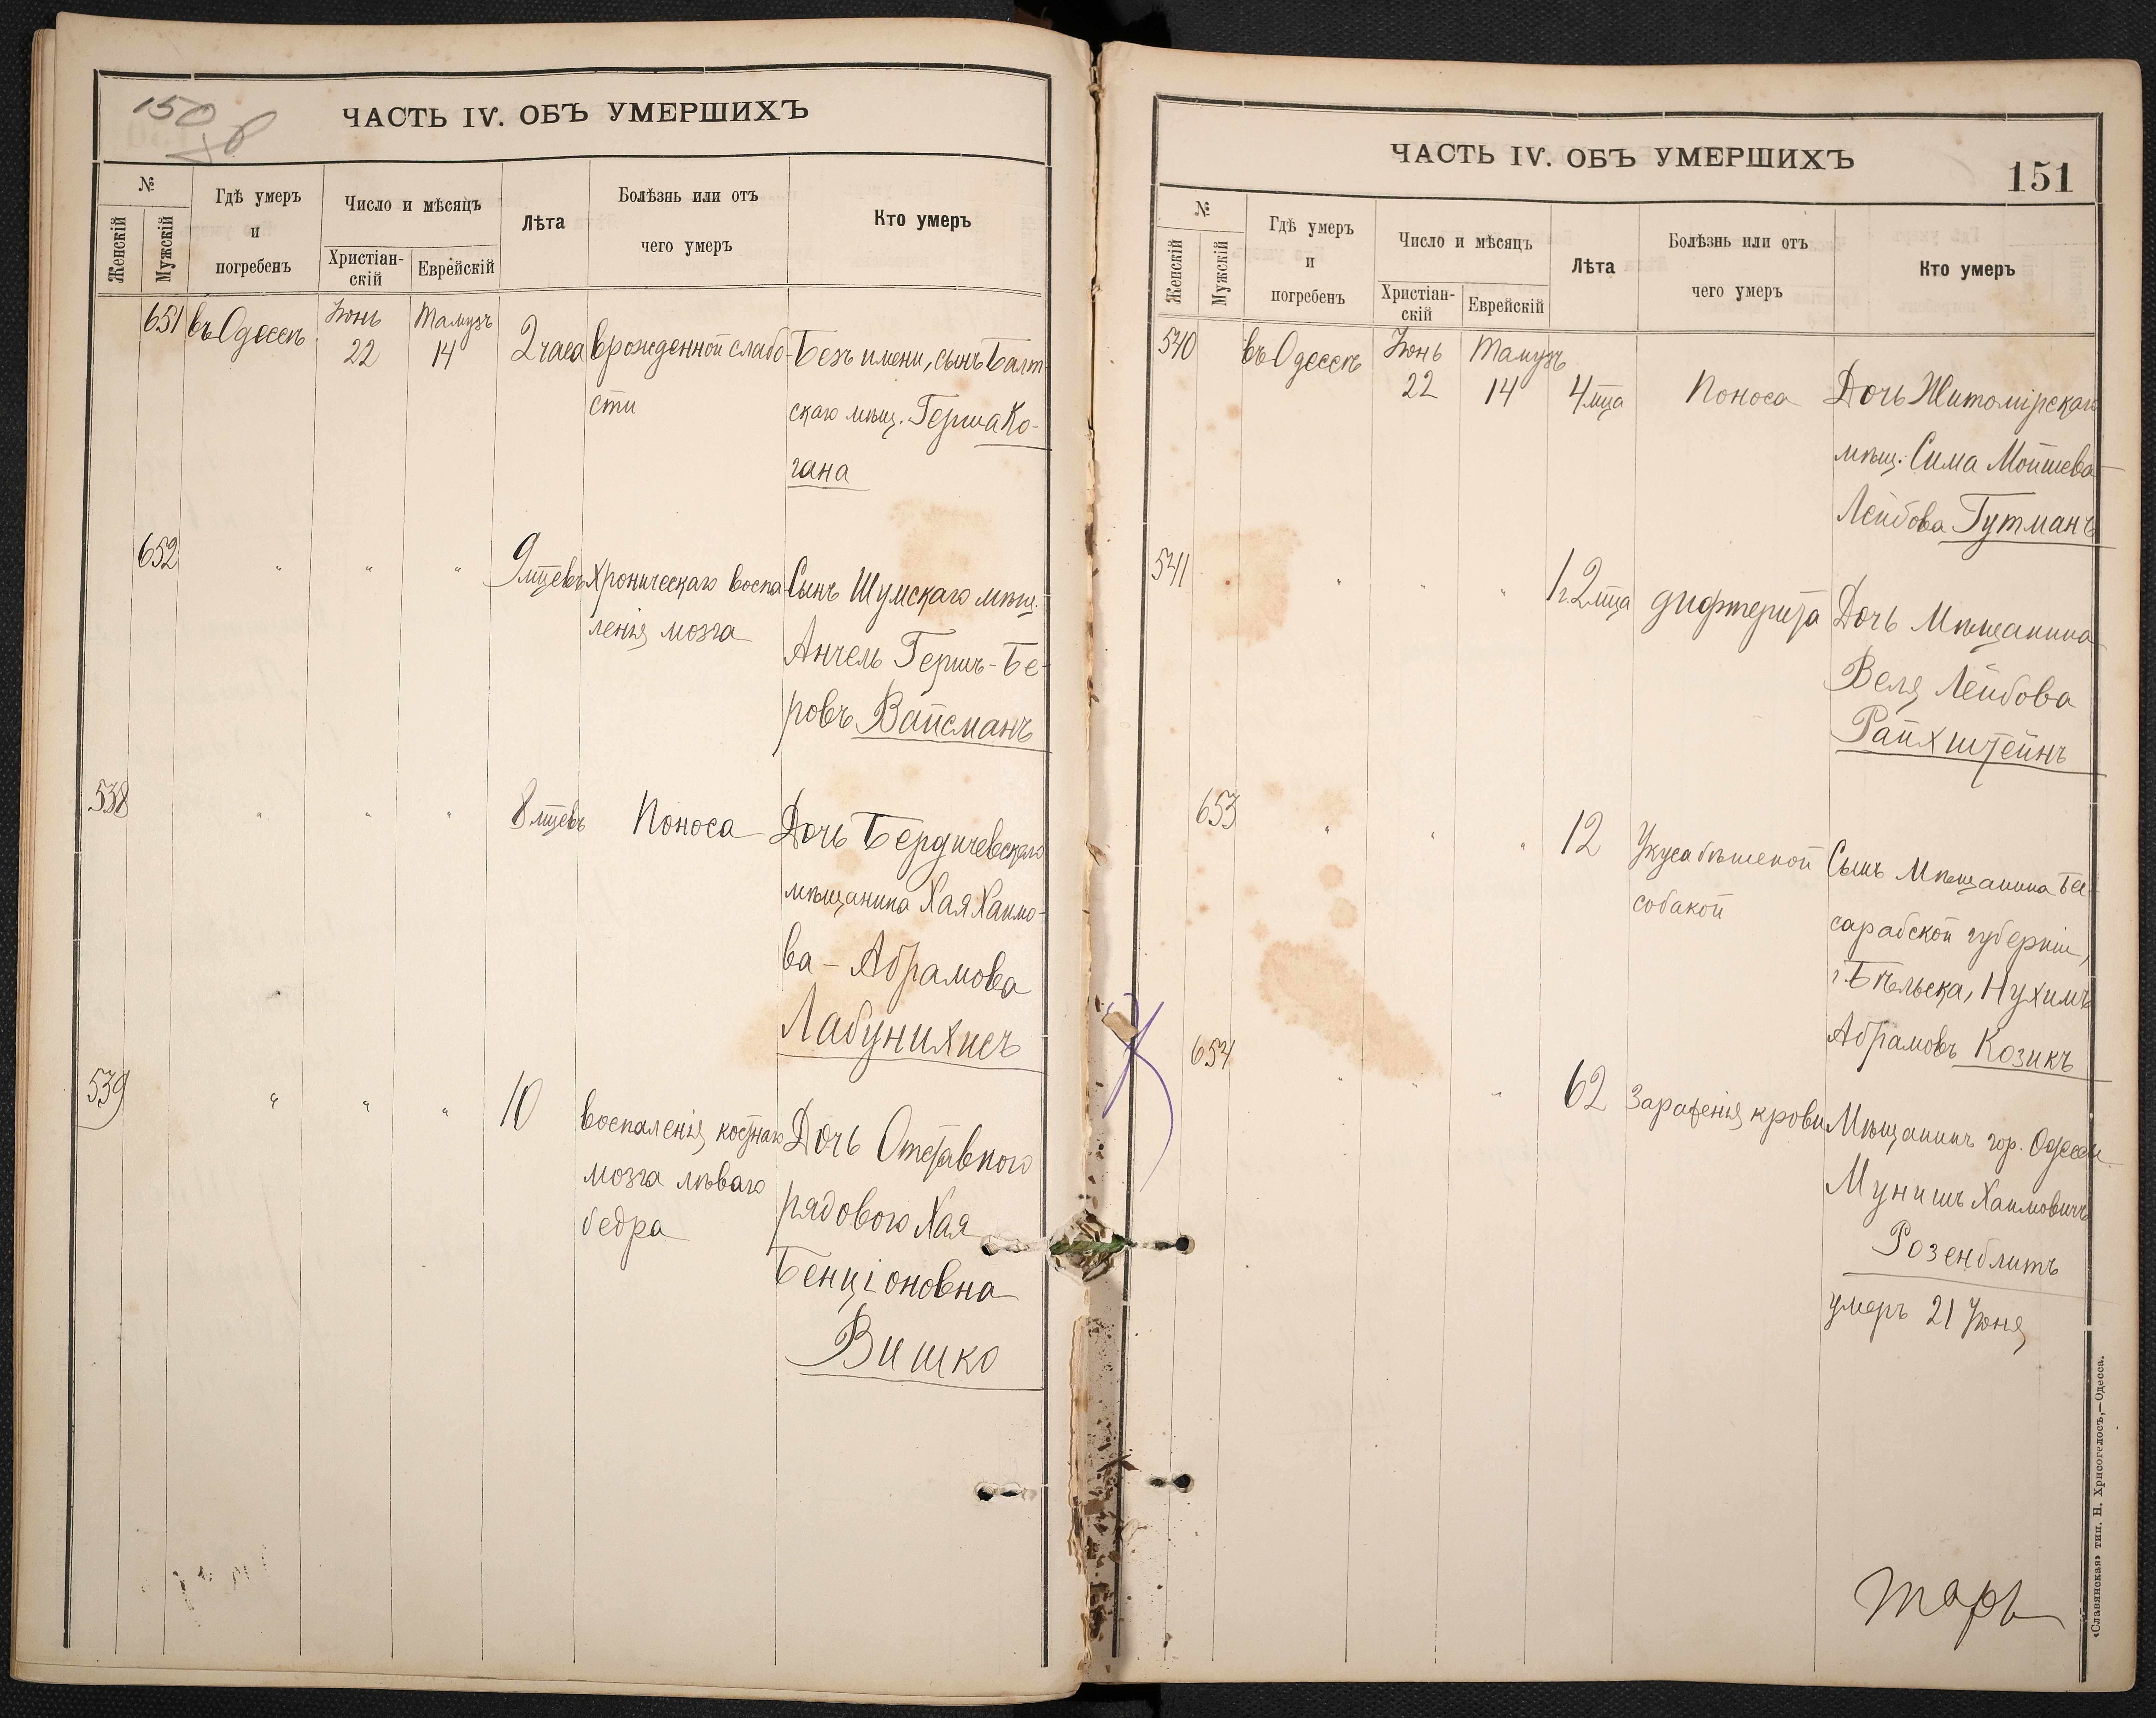 150
об
ЧАСТЬ IV. ОБЪ УМЕРШИХЪ
№
Женскій
Мужскій
Гдѣ умеръ
и
погребенъ
Число и мѣсяцъ
Христіан-
скій
Еврейскій
Лѣта
Болѣзнь или отъ
чего умеръ
Кто умеръ
651 въ Одессѣ Іюнь 22 Тамузъ 14 2 часа врожденной слабо- Безъ имени, сынъ Балт-
сти скаго мѣщ. Герша Ко-
гана
652 " " " 9 мцевъ Хроническаго воспа- Сынъ Шумскаго мѣщ.
ленія мозга Анчель Гершъ-Бе-
ровъ Вайсманъ
538 " " " 8 мцевъ Поноса Дочь Бердичевскаго
мѣщанина Хая Хаимо-
ва - Абрамова
Лабунихисъ
539 " " " 10 воспаленія костнаго Дочь Отставного
мозга лѣваго рядового Хая
бедра Бенціоновна
Вишко
ЧАСТЬ IV. ОБЪ УМЕРШИХЪ
151
№
Женскій
Мужскій
Гдѣ умеръ
и
погребенъ
Число и мѣсяцъ
Христіан-
скій
Еврейскій
Лѣта
Болѣзнь или отъ
чего умеръ
Кто умеръ
540 въ Одессѣ Іюнь 22 Тамузъ 14 4 мца Поноса Дочь Житомірскаго
мѣщ. Сима Мойшева-
Лейбова Гутманъ
541 " " " 1 г. 2 мца дифтерита Дочь Мѣщанина
Веля Лейбова
Райхштейнъ
653 " " " 12 Укуса бѣшеной Сынъ Мѣщанина Бес-
собакой сарабской губерніи,
г. Бѣльска, Нухимъ
Абрамовъ Козикъ
654 " " " 62 Зараженія крови Мѣщанинъ гор. Одессы
Мунишъ Хаимовичъ
Розенблитъ
умеръ 21 Іюня
«Славянская» тип. Н. Хрисогелосъ,—Одесса.